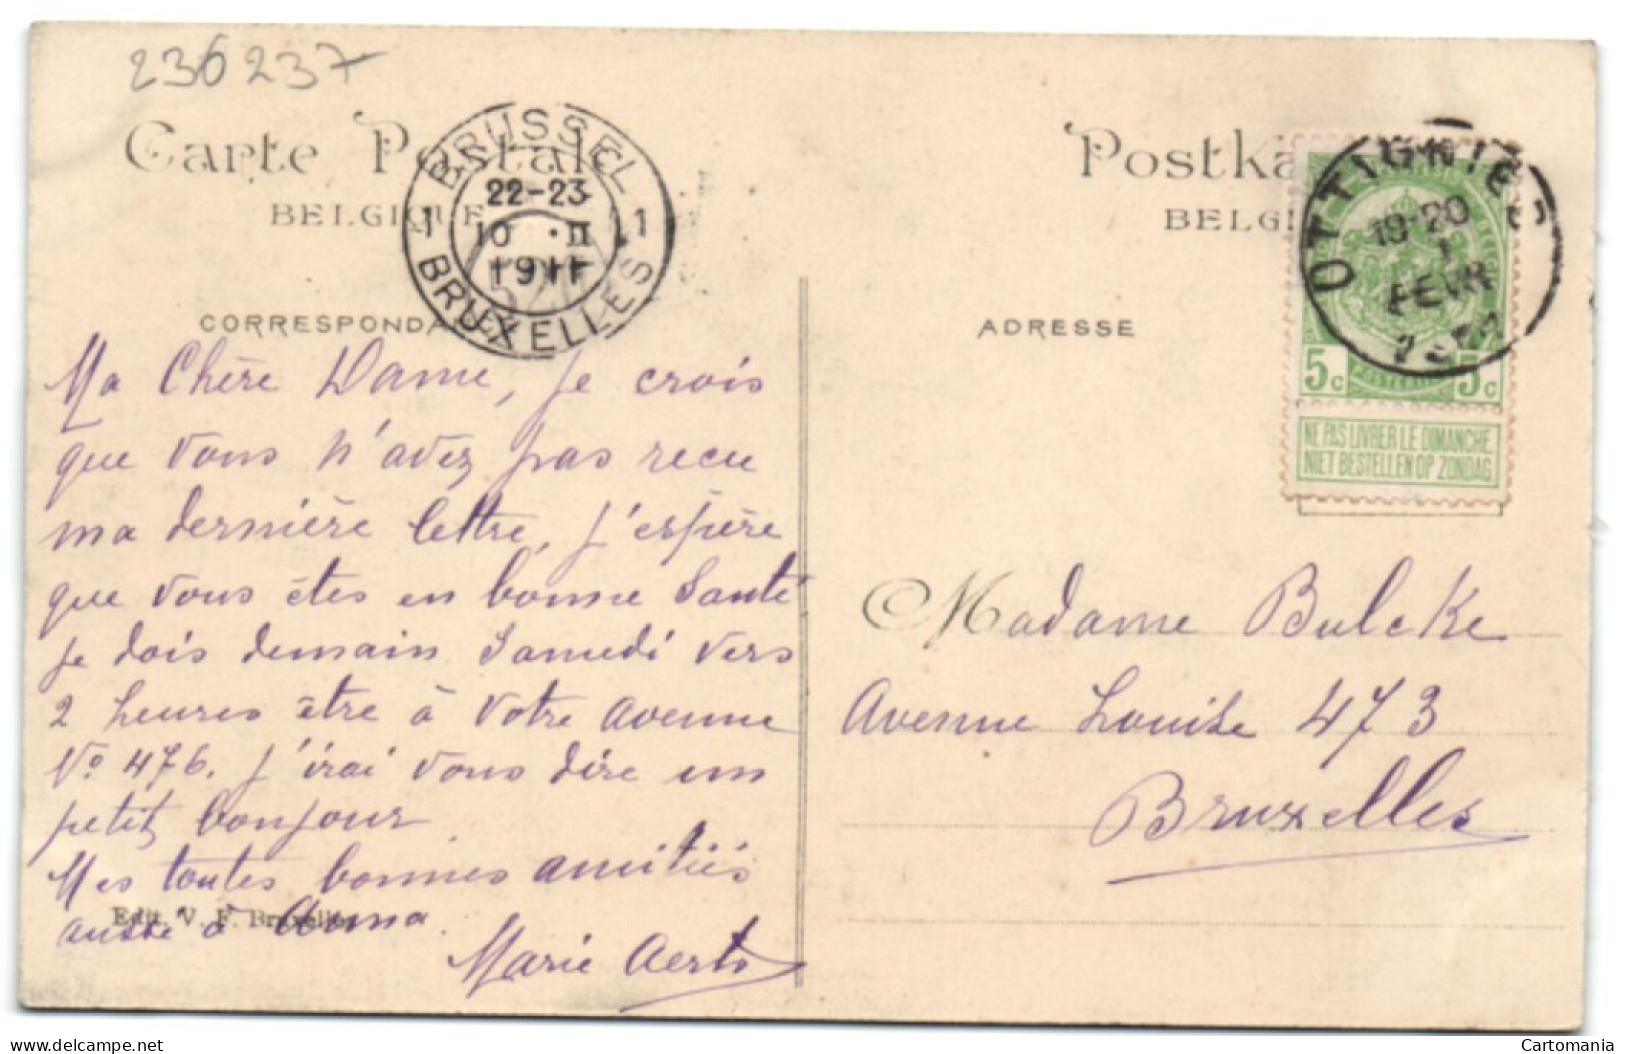 236237
Carte Postale
BELGIQUE
BRUSSEL
22-23
1 10 · II 1
1911
BRUXELLES
CORRESPONDA
Ma Chère Dame, je crois
que vous n'avez pas recu
ma dernière lettre, j'espère
que vous êtes en bonne Santé
je dois demain Samedi vers
2 heures être à votre avenue
No 476. j'irai vous dire un
petit bonjour
Mes toutes bonnes amitiés
Edit. V. F. Bruxelles
ausse à Anna
Marie Aerts
Postka
BELGI
OTTIGNIES
19-20
FEVR
5c 5c
NE PAS LIVRER LE DIMANCHE
NIET BESTELLEN OP ZONDAG
ADRESSE
Madame Bulcke
Avenue Louise 473
Bruxelles
delcampe.net
Cartomania